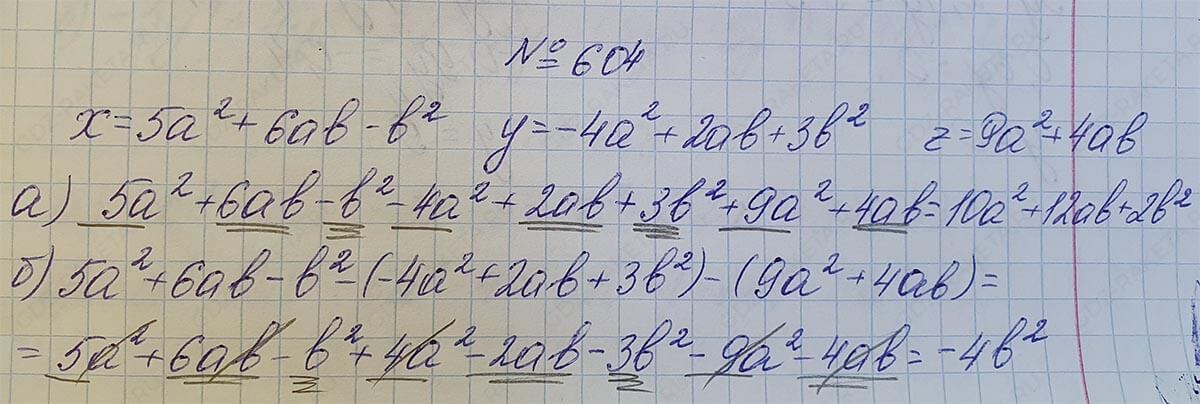 № 604
x = 5a² + 6ab - b² y = -4a² + 2ab + 3b² z = 9a² + 4ab
а) 5a² + 6ab - b² - 4a² + 2ab + 3b² + 9a² + 4ab = 10a² + 12ab + 2b²
б) 5a² + 6ab - b² - (-4a² + 2ab + 3b²) - (9a² + 4ab) =
= 5a² + 6ab - b² + 4a² - 2ab - 3b² - 9a² - 4ab = -4b²